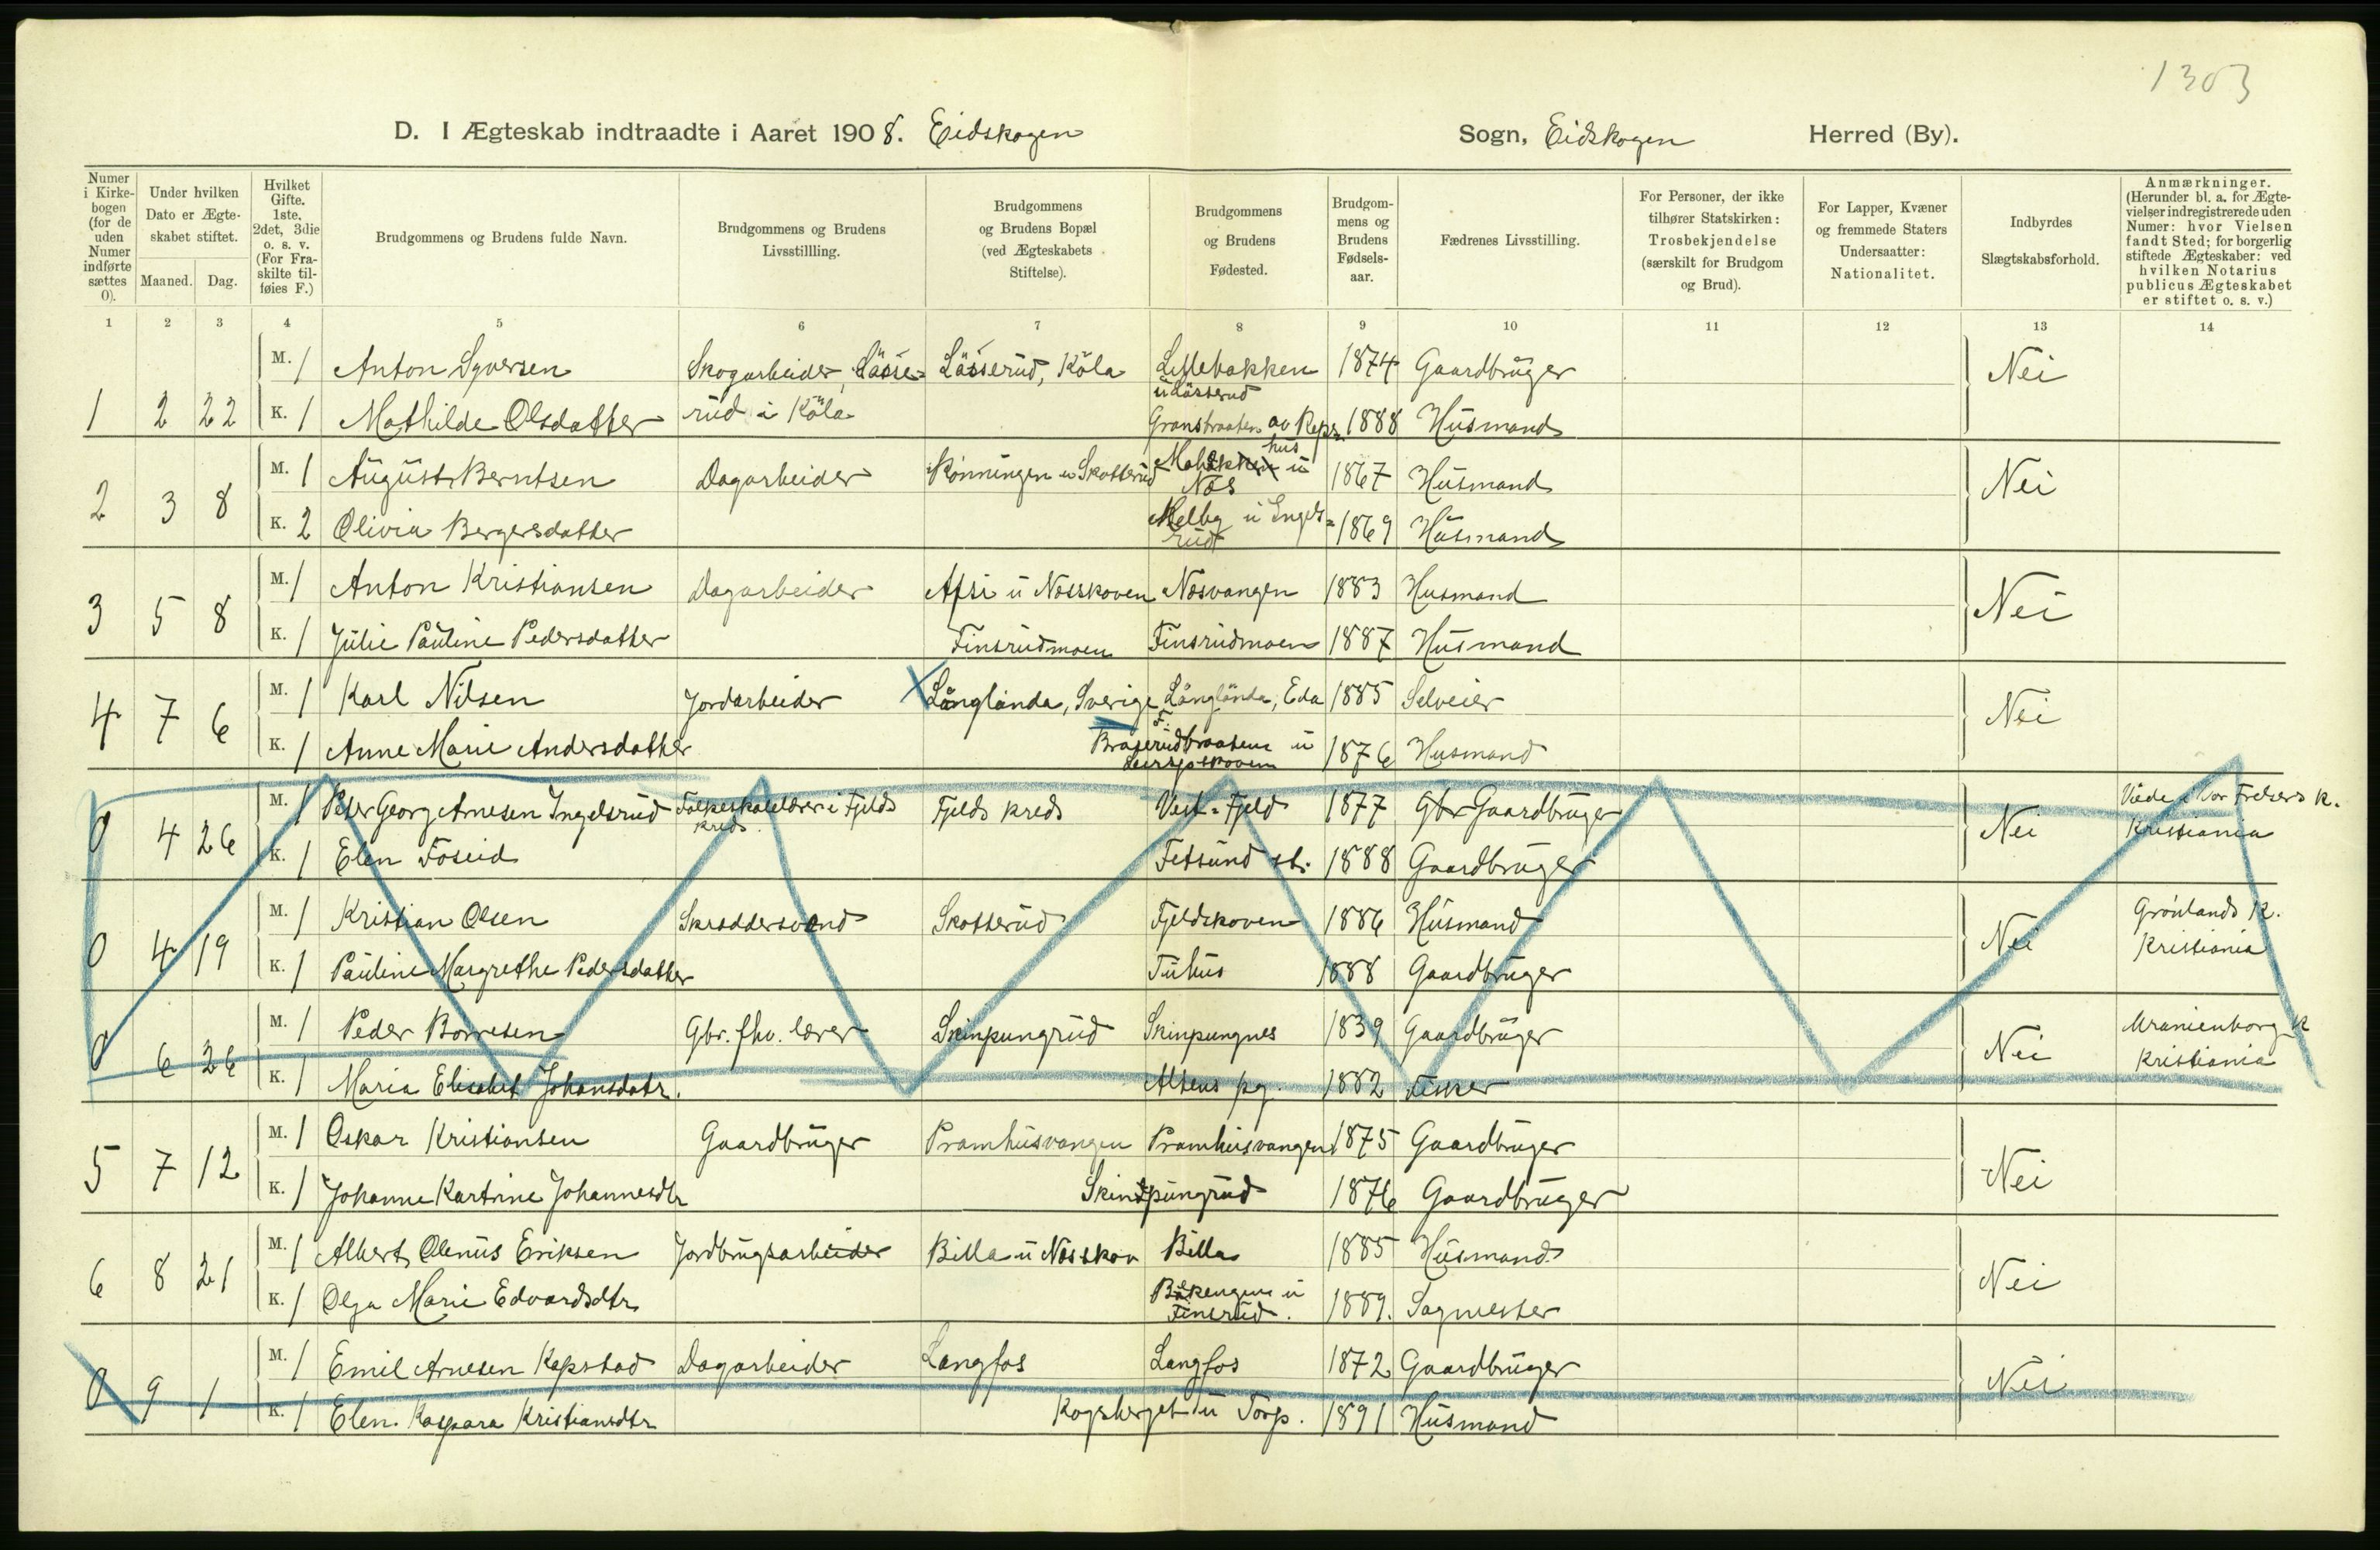 1303
D. I Ægteskab indtraadte i Aaret 1908. Eidskogen Sogn, Eidskogen Herred (By).
Numer i Kirkebogen (for de uden Numer indførte sættes 0).
Under hvilken Dato er Ægteskabet stiftet.
Maaned. Dag.
Hvilket Gifte. 1ste, 2det, 3die o. s. v. (For Fraskilte tilføies F.)
Brudgommens og Brudens fulde Navn.
Brudgommens og Brudens Livsstillling.
Brudgommens og Brudens Bopæl (ved Ægteskabets Stiftelse).
Brudgommens og Brudens Fødested.
Brudgommens og Brudens Fødselsaar.
Fædrenes Livsstilling.
For Personer, der ikke tilhører Statskirken: Trosbekjendelse (særskilt for Brudgom og Brud).
For Lapper, Kvæner og fremmede Staters Undersaatter: Nationalitet.
Indbyrdes Slægtskabsforhold.
Anmærkninger. (Herunder bl. a. for Ægtevielser indregistrerede uden Numer: hvor Vielsen fandt Sted; for borgerlig stiftede Ægteskaber: ved hvilken Notarius publicus Ægteskabet er stiftet o. s. v.)
1 2 3 4 5 6 7 8 9 10 11 12 13 14
M. 1 Anton Syversen Skogarbeider, Lässe= Lässerud, Köla Lillebakken u Lässerud 1874 Gaardbruger Nei
1 2 22 K. 1 Mathilde Olsdatter rud i Köla Granstraaten av 1888 Husmand
M. 1 August Berntsen Dagarbeider Rönningen u Skotterud u Næs 1867 Husmand Nei
2 3 8 K. 2 Olivia Bergersdatter Melby u Engelsrud 1869 Husmand
M. 1 Anton Kristiansen Dagarbeider Apsi u Næsskoven Næsvangen 1883 Husmand Nei
3 5 8 K. 1 Julie Pauline Pedersdatter Finsrudmoen Finsrudmoen 1887 Husmand
M. 1 Karl Nilsen Jordarbeider Långlånda, Sverige Långlånda, Eda 1885 Selveier Nei
4 7 6 K. 1 Anne Marie Andersdatter Braserudbraaten u 1876 Husmand
M. 1 Peter Georg Arnesen Ingelsrud Folkeskolelærer i Fjelds kreds. Fjelds kreds Vest-Fjeld 1877 Gbr Gaardbruger Nei Viede i Vor Frelsers k. Kristiania
0 4 26 K. 1 Elen Foseid Fetsund st. 1888 Gaardbruger
M. 1 Kristian Olsen Skræddersvend Skotterud Fjeldskoven 1886 Husmand Nei Grönlands K. Kristiania
0 4 19 K. 1 Pauline Margrethe Pedersdatter Tuhus 1888 Gaardbruger
M. 1 Peder Borresen Gbr. fhv. lærer Skinpungrud Skinpungnes 1839 Gaardbruger Nei Uranienborg K Kristiania
0 6 26 K. 1 Maria Elisabet Johansdatr. Altens pg. 1882 Fisker
M. 1 Oskar Kristiansen Gaardbruger Pramhusvangen Pramhusvangen 1875 Gaardbruger Nei
5 7 12 K. 1 Johanne Kartrine Johannesdtr Skindpungrud 1876 Gaardbruger
M. 1 Albert Olenius Eriksen Jordbrugsarbeider Billa u Næsskov Billa 1885 Husmand Nei
6 8 21 K. 1 Olga Marie Edvardsdtr Bækengen u Finsrud. 1889. Sagmester
M. 1 Emil Arnesen Kapstad Dagarbeider Langfos Langfos 1872 Gaardbruger Nei
0 9 1 K. 1 Elen Kaspara Kristiansdtr u Torp. 1891 Husmand